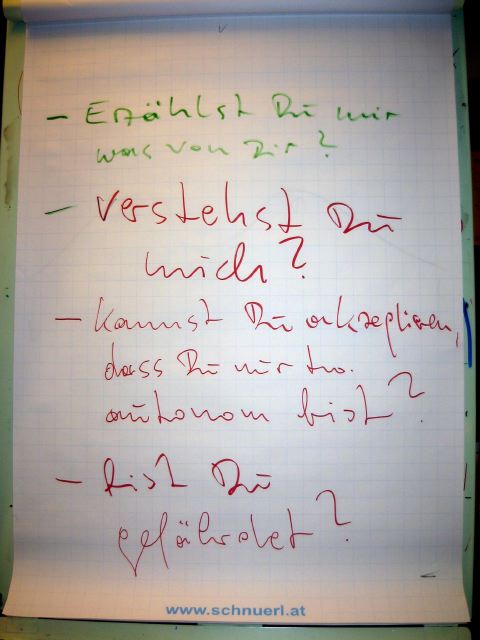 - Erzählst Du mir
was von Dir?
- Verstehst Du
mich?
- Kannst Du akzeptieren,
dass Du nur tw.
autonom bist?
- Bist Du
gefährdet?
www.schnuerl.at